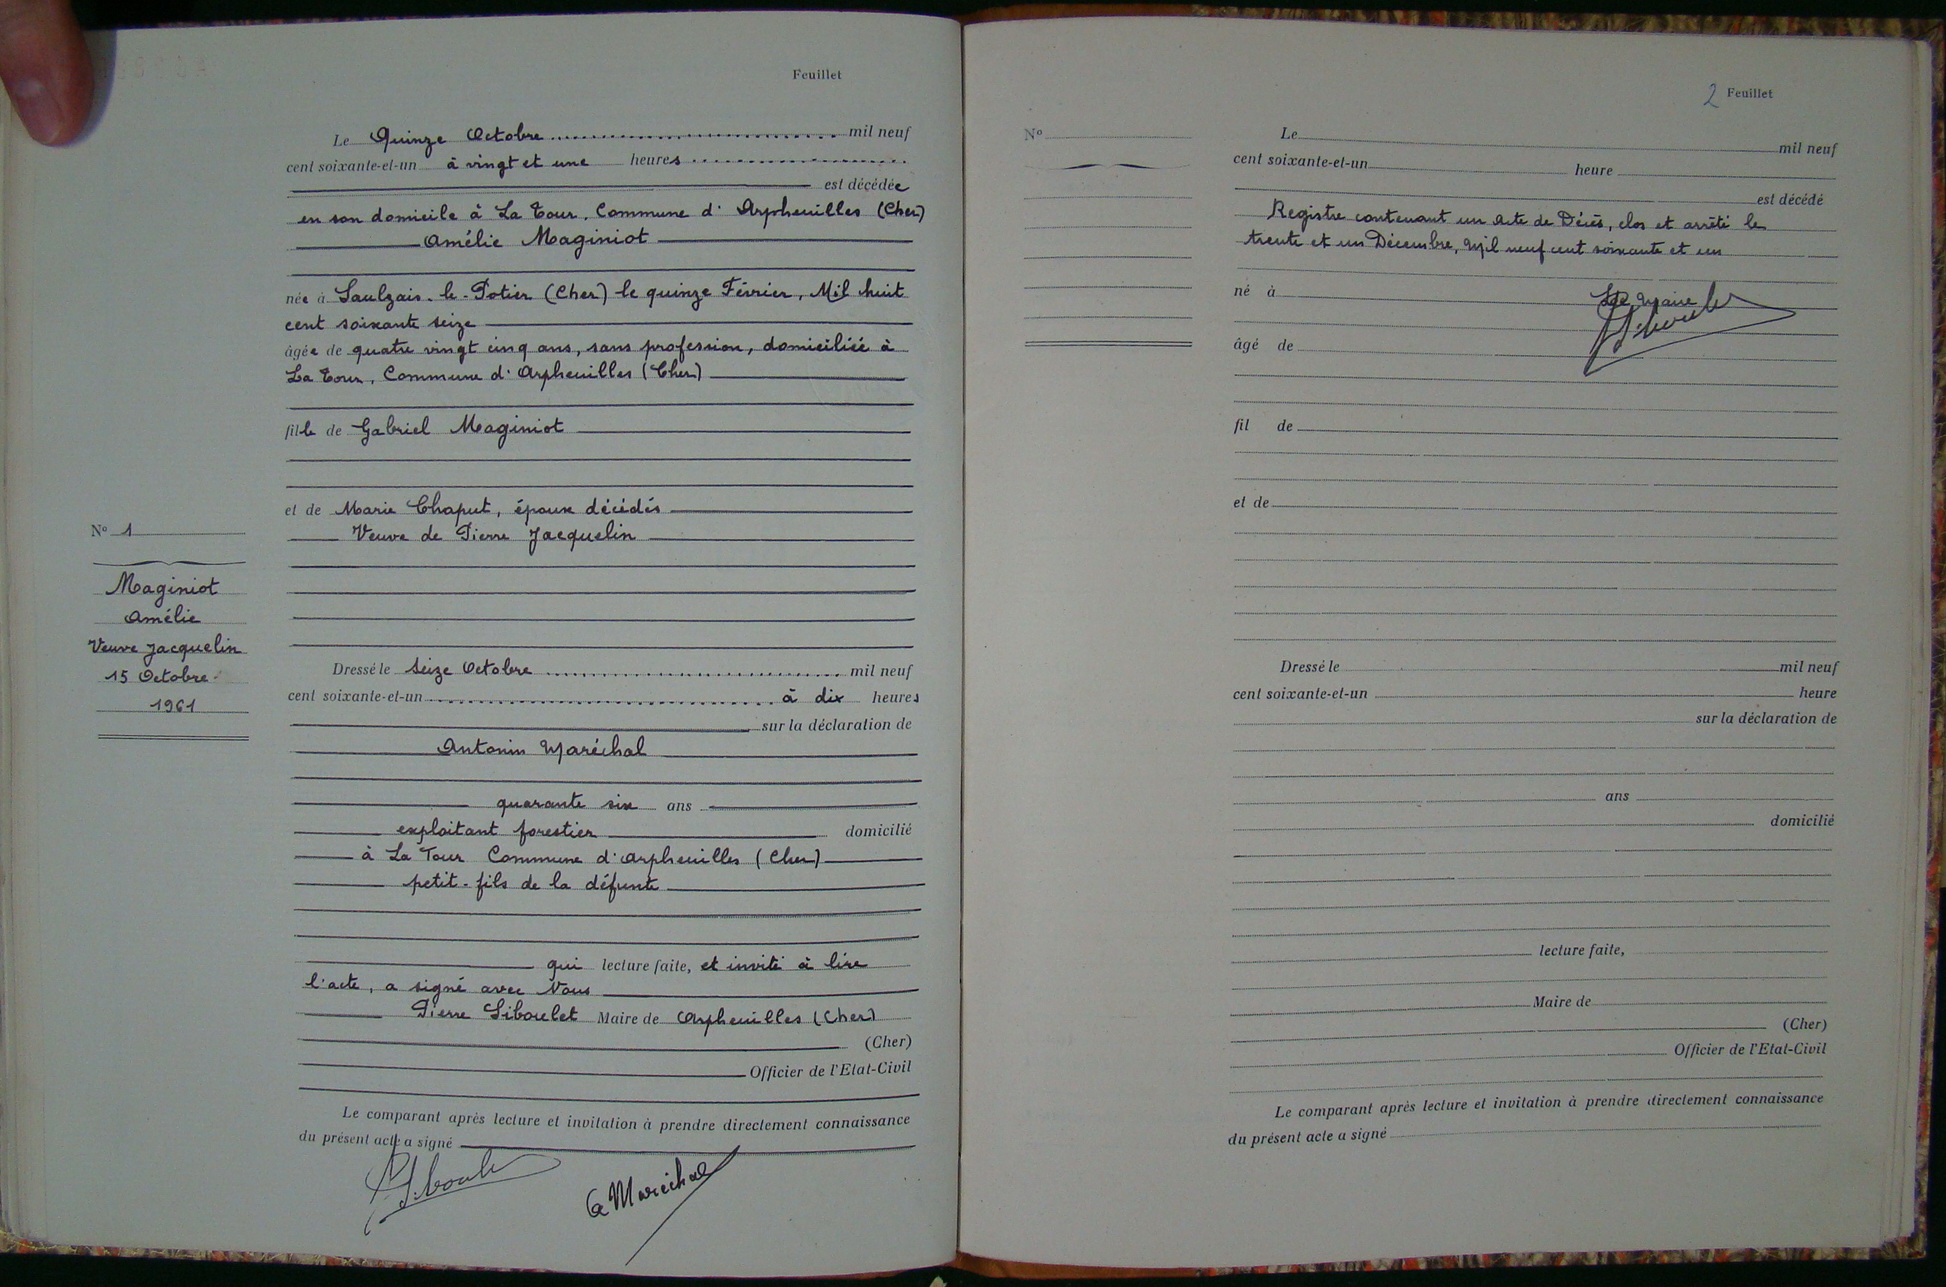 Feuillet
Le Quinze Octobre mil neuf
cent soixante-et-un à vingt et une heures
est décédée
en son domicile à La Tour, Commune d'Arpheuilles (Cher)
Amélie Maginiot
née à Saulzais-le-Potier (Cher) le quinze Février, Mil huit
cent soixante seize
âgée de quatre vingt cinq ans, sans profession, domiciliée à
La Tour, Commune d'Arpheuilles (Cher)
fille de Gabriel Maginiot
et de Marie Chaput, époux décédés
Veuve de Pierre Jacquelin
N° 1
Maginiot
Amélie
Veuve Jacquelin
15 Octobre
1961
Dressé le Seize Octobre mil neuf
cent soixante-et-un à dix heures
sur la déclaration de
Antonin Maréchal
quarante six ans
exploitant forestier domicilié
à La Tour Commune d'Arpheuilles (Cher)
petit-fils de la défunte
qui lecture faite, et invité à lire
l'acte, a signé avec Nous
Pierre Siboulet Maire de Arpheuilles (Cher)
(Cher)
Officier de l'Etat-Civil
Le comparant après lecture et invitation à prendre directement connaissance
du présent acte a signé
a Maréchal
2 Feuillet
N°
Le mil neuf
cent soixante-et-un heure
est décédé
Registre contenant un Acte de Décès, clos et arrêté le
trente et un Décembre, Mil neuf cent soixante et un
né à
Le Maire
âgé de
fil de
et de
Dressé le mil neuf
cent soixante-et-un heure
sur la déclaration de
ans
domicilié
lecture faite,
Maire de
(Cher)
Officier de l'Etat-Civil
Le comparant après lecture et invitation à prendre directement connaissance
du présent acte a signé